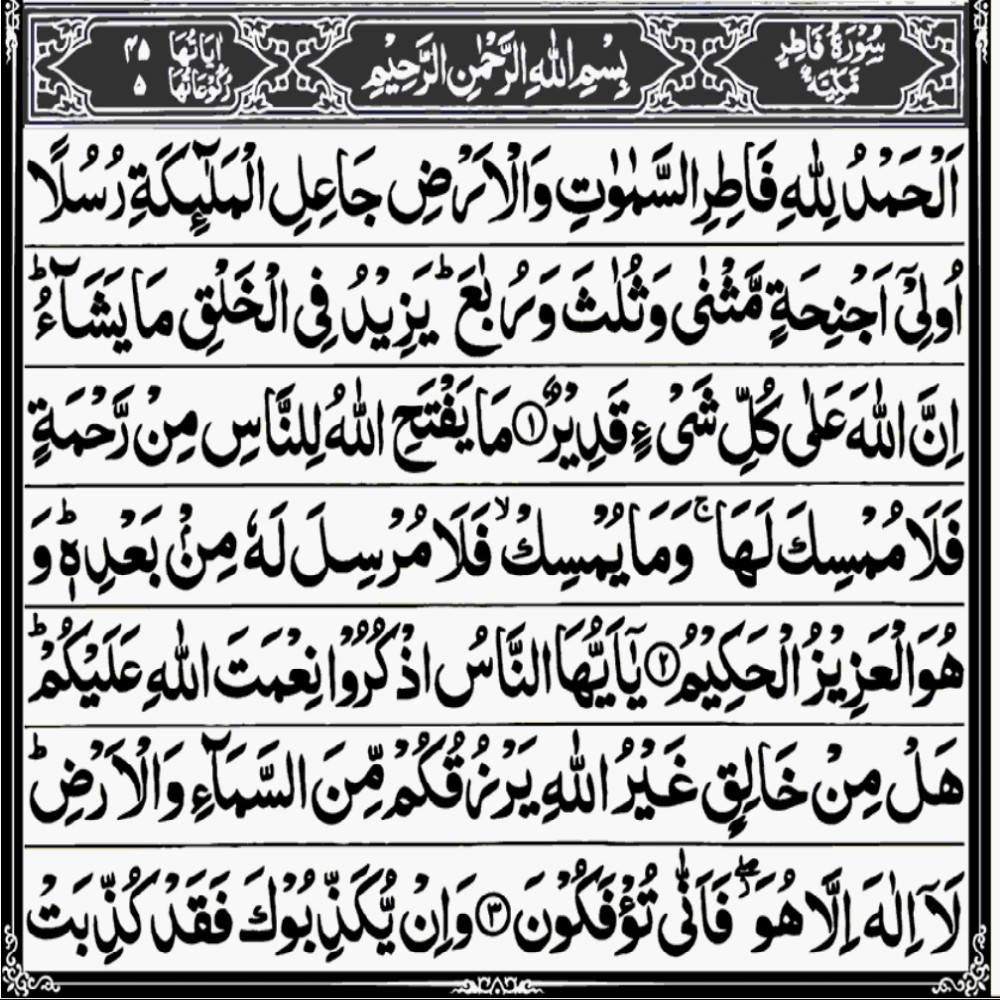 سُوْرَةُ فَاطِرٍ مَّكِّيَّةٌ
بِسْمِ اللّٰهِ الرَّحْمٰنِ الرَّحِيْمِ
اٰيَاتُهَا ۴۵
رُكُوْعَاتُهَا ۵
اَلْحَمْدُ لِلّٰهِ فَاطِرِ السَّمٰوٰتِ وَالْاَرْضِ جَاعِلِ الْمَلٰٓئِكَةِ رُسُلًا
اُولِیْۤ اَجْنِحَةٍ مَّثْنٰى وَثُلٰثَ وَرُبٰعَ ؕ يَزِيْدُ فِی الْخَلْقِ مَا يَشَآءُ ؕ
اِنَّ اللّٰهَ عَلٰى كُلِّ شَیْءٍ قَدِيْرٌ ۝۱ مَا يَفْتَحِ اللّٰهُ لِلنَّاسِ مِنْ رَّحْمَةٍ
فَلَا مُمْسِكَ لَهَا ۚ وَمَا يُمْسِكْ ۙ فَلَا مُرْسِلَ لَهٗ مِنْۢ بَعْدِهٖ ؕ وَ
هُوَ الْعَزِيْزُ الْحَكِيْمُ ۝۲ يٰۤاَيُّهَا النَّاسُ اذْكُرُوْا نِعْمَتَ اللّٰهِ عَلَيْكُمْ ؕ
هَلْ مِنْ خَالِقٍ غَيْرُ اللّٰهِ يَرْزُقُكُمْ مِّنَ السَّمَآءِ وَالْاَرْضِ ؕ
لَاۤ اِلٰهَ اِلَّا هُوَ ۖ فَاَنّٰى تُؤْفَكُوْنَ ۝۳ وَاِنْ يُّكَذِّبُوْكَ فَقَدْ كُذِّبَتْ